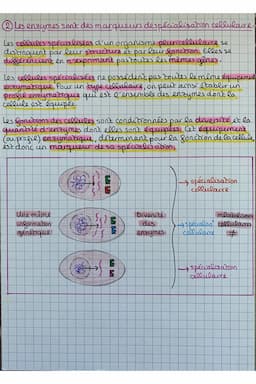 ② Les enzymes sont des marqueurs de spécialisation cellulaire
Les cellules spécialisées d'un organisme pluricellulaire se
distinguent par leur structure et par leur fonction. Elles se
différencient en n'exprimant pas toutes les mêmes gènes.
Les cellules spécialisées ne possèdent pas toutes le même équipement
enzymatique. Pour un type cellulaire, on peut ainsi établir un
profil enzymatique qui est l'ensemble des enzymes dont la
cellule est équipée.
Les fonctions des cellules sont conditionnées par la diversité et la
quantité d'enzymes dont elles sont équipées. Cet équipement
(ou profil) enzymatique, déterminant pour la fonction de la cellule
est donc un marqueur de sa spécialisation.
→ spécialisation
cellulaire
Une même
information
génétique
Diversité
des
enzymes
→ spécialisation
cellulaire
métabolisme
cellulaire
≠
→ spécialisation
cellulaire